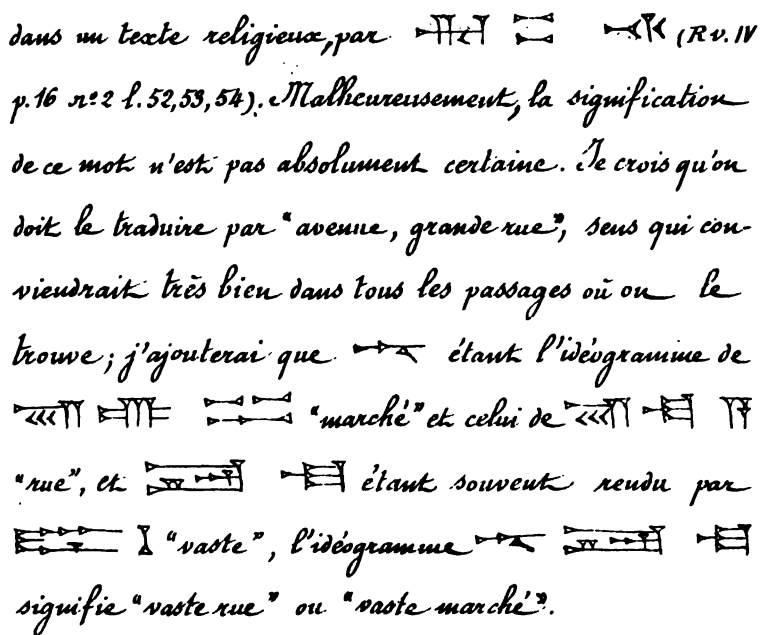 dans un texte religieux, par (R v. IV
p.16 nº 2 l.52,53,54). Malheureusement, la signification
de ce mot n'est pas absolument certaine. Je crois qu'on
doit le traduire par "avenue, grande rue", sens qui con-
viendrait très bien dans tous les passages où on le
trouve ; j'ajouterai que étant l'idéogramme de
"marché" et celui de
"rue", et étant souvent rendu par
"vaste", l'idéogramme
signifie "vaste rue" ou "vaste marché".